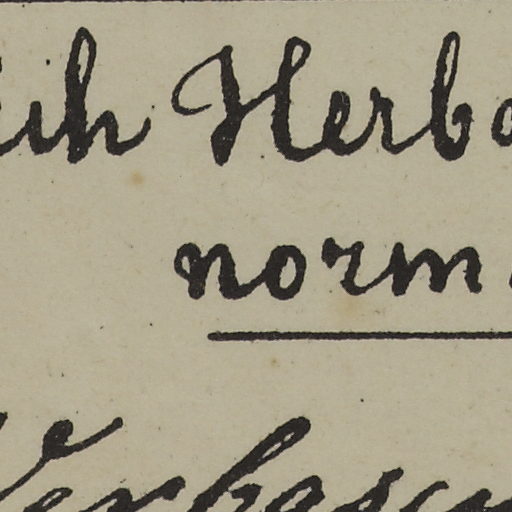 ih Herba
norm
Verbascu